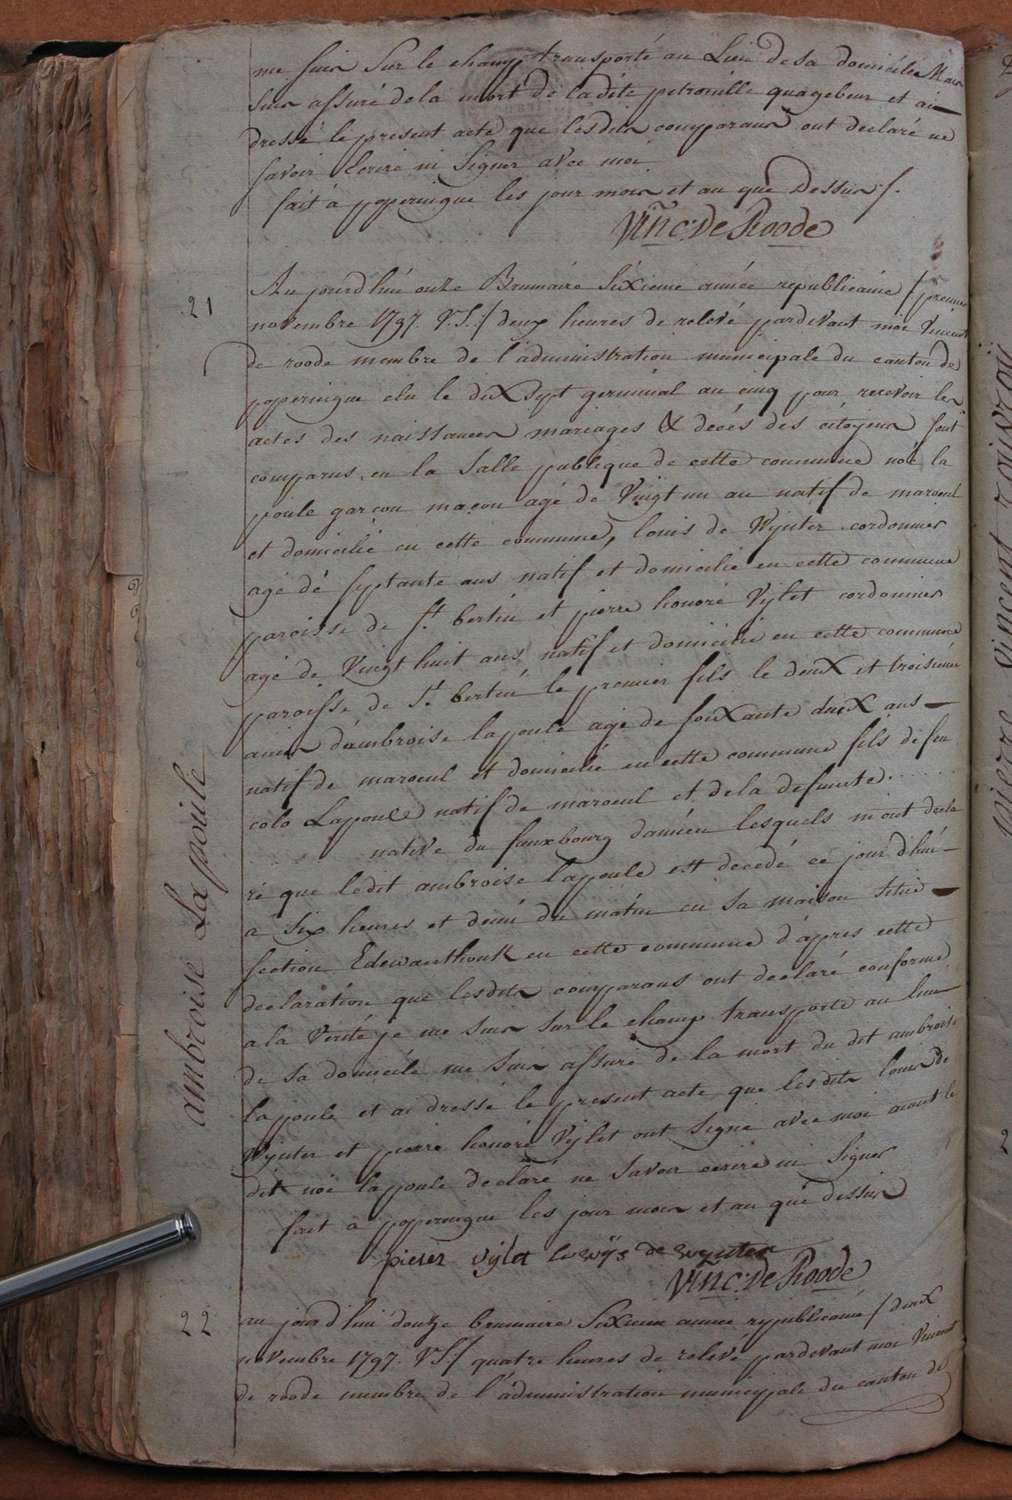 me suis sur le champ transporté au Lieu de sa domicile
suis assuré de la mort de la dite petronille quagebeur et ai
dressé le present acte que lesdits comparans ont declaré ne
savoir écrire ni signer avec moi
fait à poperingue les jour mois et an que Dessus /.
Vinc: De Roode
21
Au jourd'hui onze Brumaire Sixieme année republicaine / premier
novembre 1797. V.S: / deux heures de relevé pardevant moi Vincent
de roode membre de l'administration municipale du canton de
poperingue elu le dix sept germinal an cinq pour recevoir les
actes des naissances mariages & decés des citoyens sont
comparus en la Salle publique de cette commune noé la
poule garcon maçon agé de Vingt un an natif de maroeul
et domicilié en cette commune, louis de Wynter cordonnier
agé de septante ans natif et domicilié en cette commune
paroisse de St. bertin et pierre honoré Vylet cordonnier
agé de Vingt huit ans natif et domicilié en cette commune
paroisse de St. bertin le premier fils le deux et troisieme
amis d'ambroise lapoule agé de soixante deux ans
natif de maroeul et domicilié en cette commune fils de feu
colo Lapoule natif de maroeul et de la defunte .....
native du fauxbourg lesquels m'ont decla
ré que ledit ambroise lapoule est decedé ce jour d'hui
a six heures et demi du matin en sa maison située
section Edewaerthouk en cette commune d'après cette
declaration que lesdits comparans ont declaré conforme
a la Verité je me suis sur le champ transporté au lieu
de sa domicile me suis assuré de la mort du dit ambroise
lapoule et ai dressé le present acte que lesdits louis de
Wynter et pierre honoré Vylet ont signé avec moi aiant le
dit noé lapoule declaré ne savoir ecrire ni signer
fait a poperingue les jour mois et an que dessus
pieter vylet lowys de wynter
Vinc: De Roode
ambroise La poule
22
au jourd'hui douze brumaire Sixieme année republicaine / deux
novembre 1797. VS / quatre heures de relevé pardevant moi Vincent
de roode membre de l'administration municipale du canton de